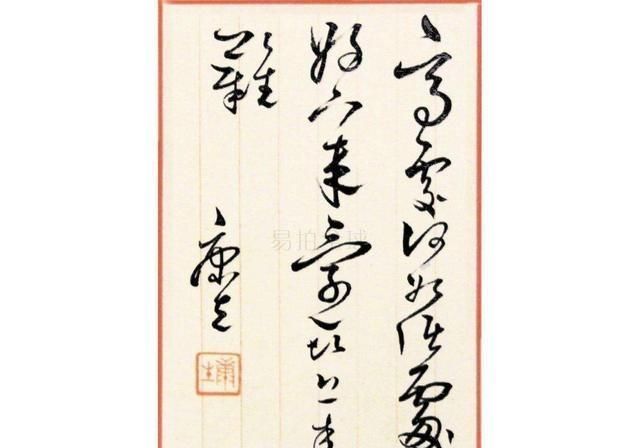 高處何如低處
好下來比上來
難
康生
康生
易拍全球